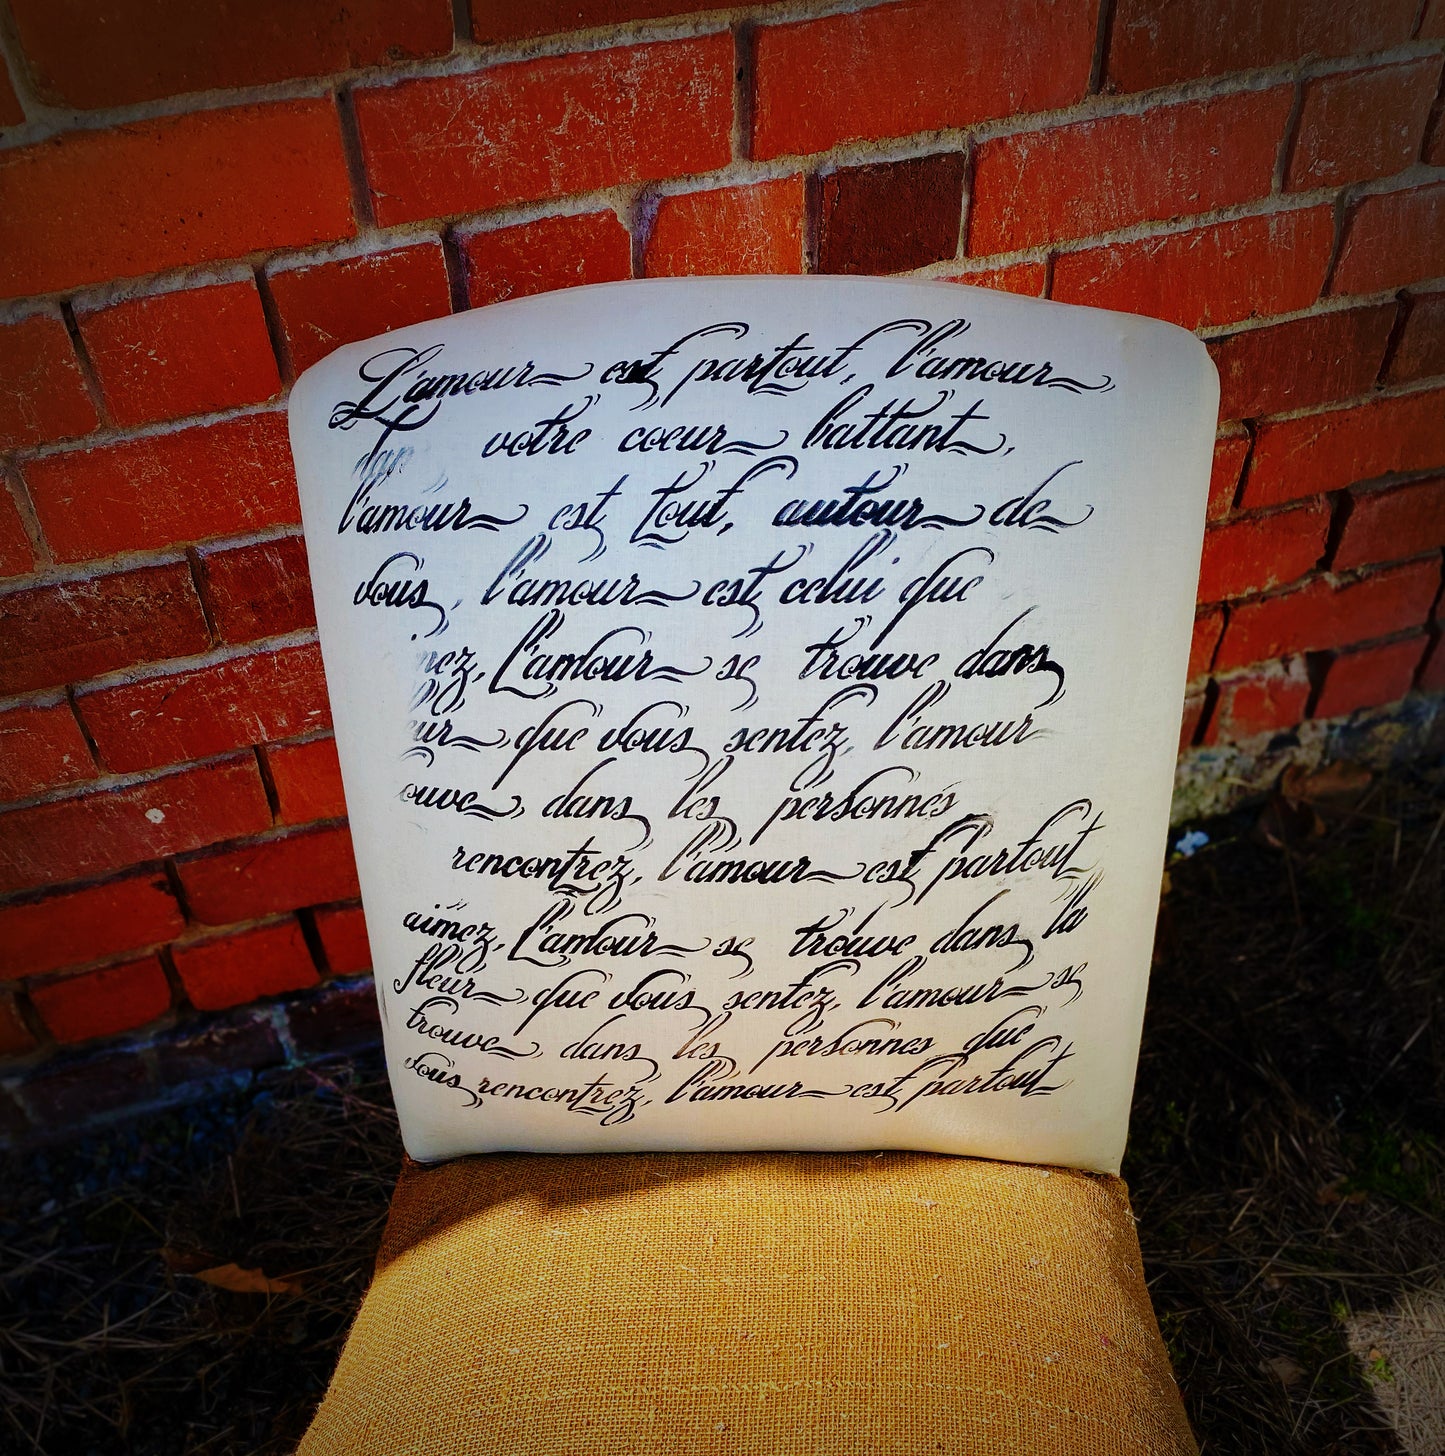 L'amour est partout, l'amour
votre coeur battant,
l'amour est tout, autour de
vous, l'amour est celui que
L'amour se trouve dans
que vous sentez, l'amour
dans les personnes
rencontrez, l'amour est partout
aimez, L'amour se trouve dans la
fleur que vous sentez, l'amour se
trouve dans les personnes que
vous rencontrez, l'amour est partout